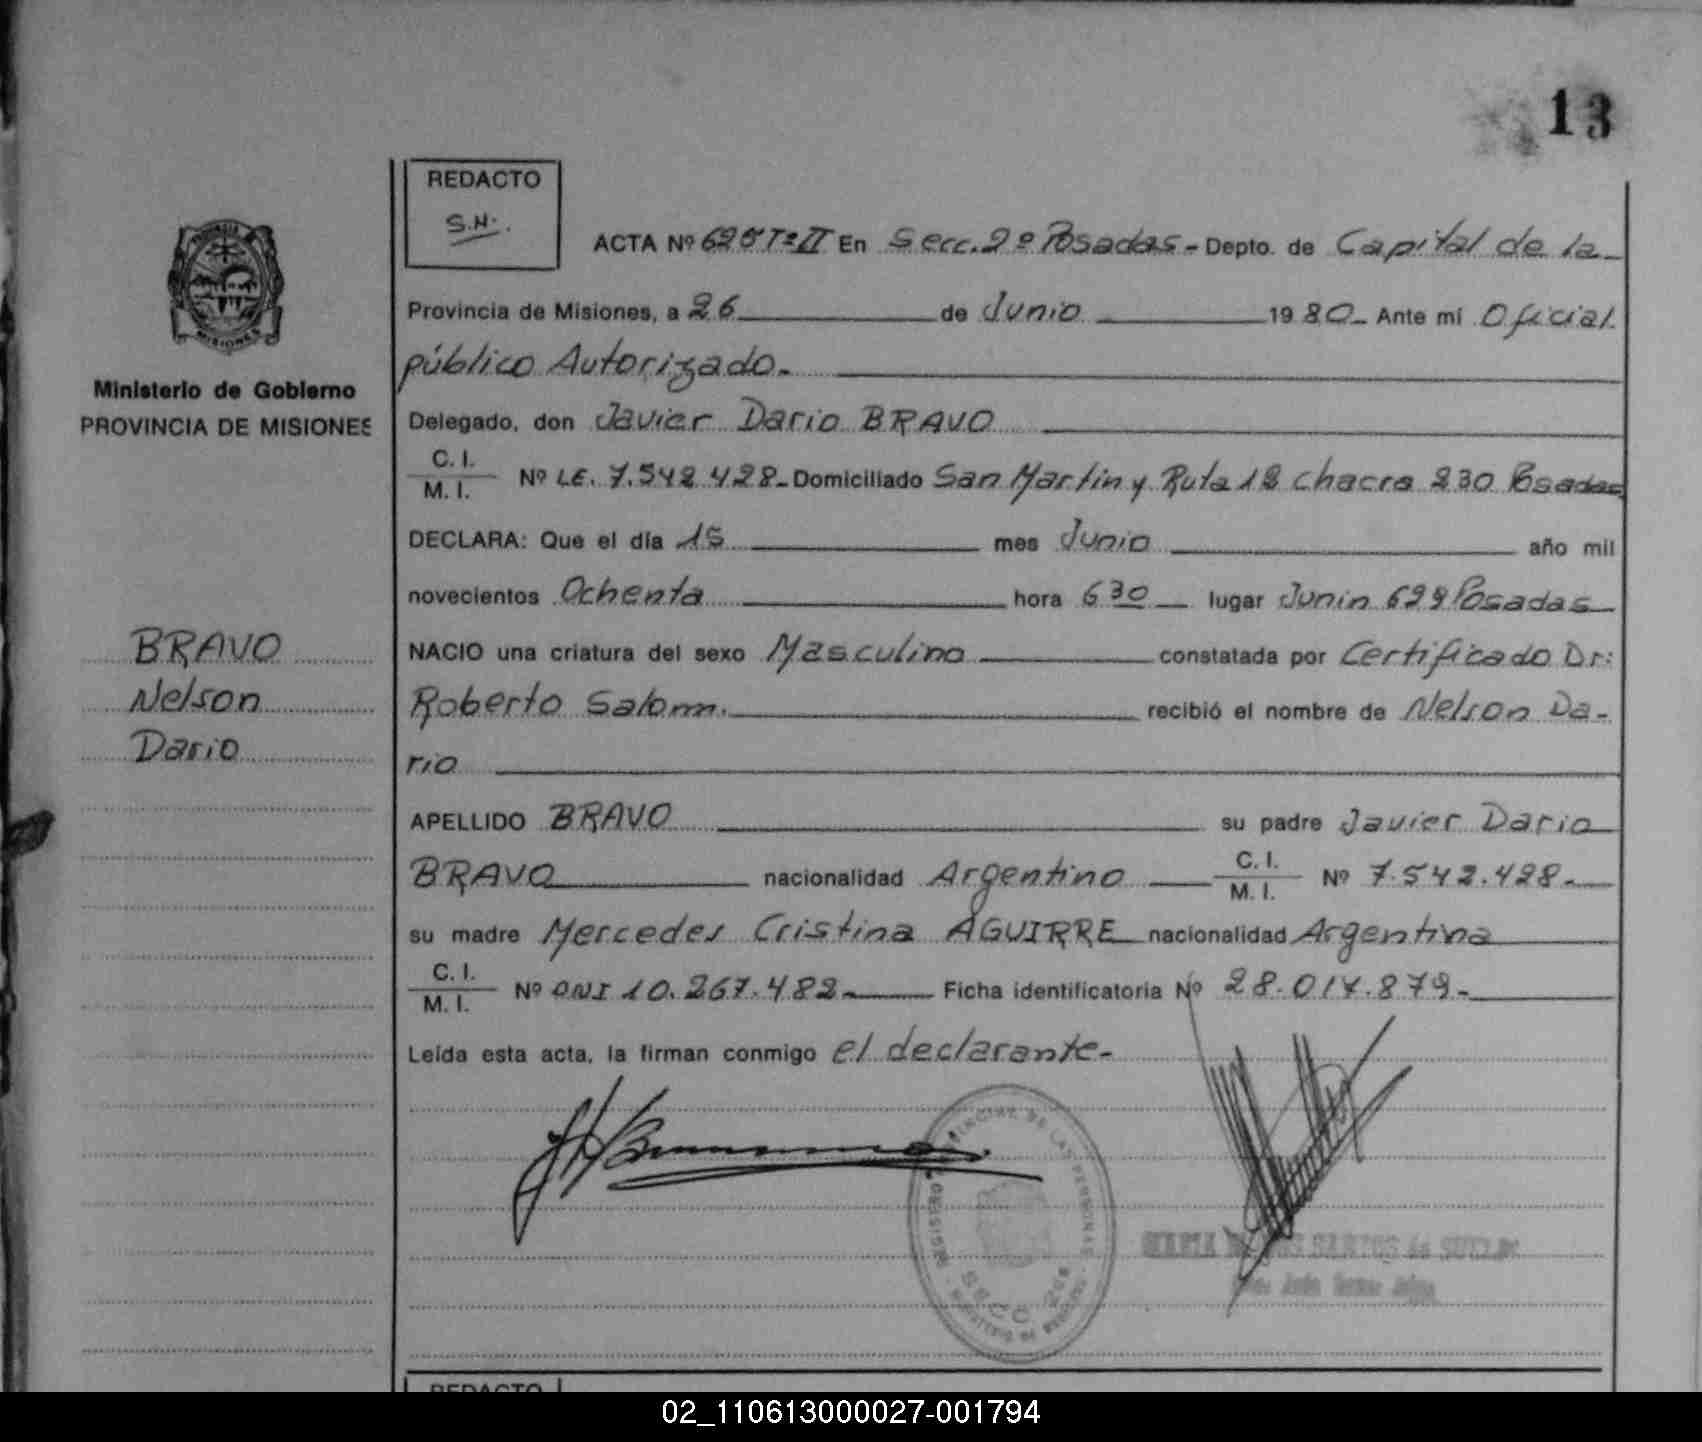 13
REDACTO
S.N.
ACTA Nº Tº II En Secc. 2º Posadas - Depto. de Capital de la
MISIONES
Provincia de Misiones, a 26 de Junio 1980 - Ante mí Oficial
público Autorizado.-
Ministerio de Gobierno
PROVINCIA DE MISIONES
Delegado, don Javier Dario BRAVO
C. I.
M. I.
Nº LE. 7.542.428.- Domiciliado San Martin y Ruta 12 chacra 230 Posadas
DECLARA: Que el día 15 mes Junio año mil
novecientos Ochenta hora 6 30 lugar Junin 699 Posadas
BRAVO
Nelson
Dario
NACIO una criatura del sexo Masculino constatada por Certificado Dr:
Roberto recibió el nombre de Nelson Da-
rio
APELLIDO BRAVO su padre Javier Dario
BRAVO nacionalidad Argentino C. I. M. I. Nº 7.542.428.-
su madre Mercedes Cristina AGUIRRE nacionalidad Argentina
C. I.
M. I.
Nº DNI 10.267.482.- Ficha identificatoria Nº 28.014.879.-
Leída esta acta, la firman conmigo el declarante.-
DE LAS PERSONAS
SECC. 2da
REDACTO
02_110613000027-001794